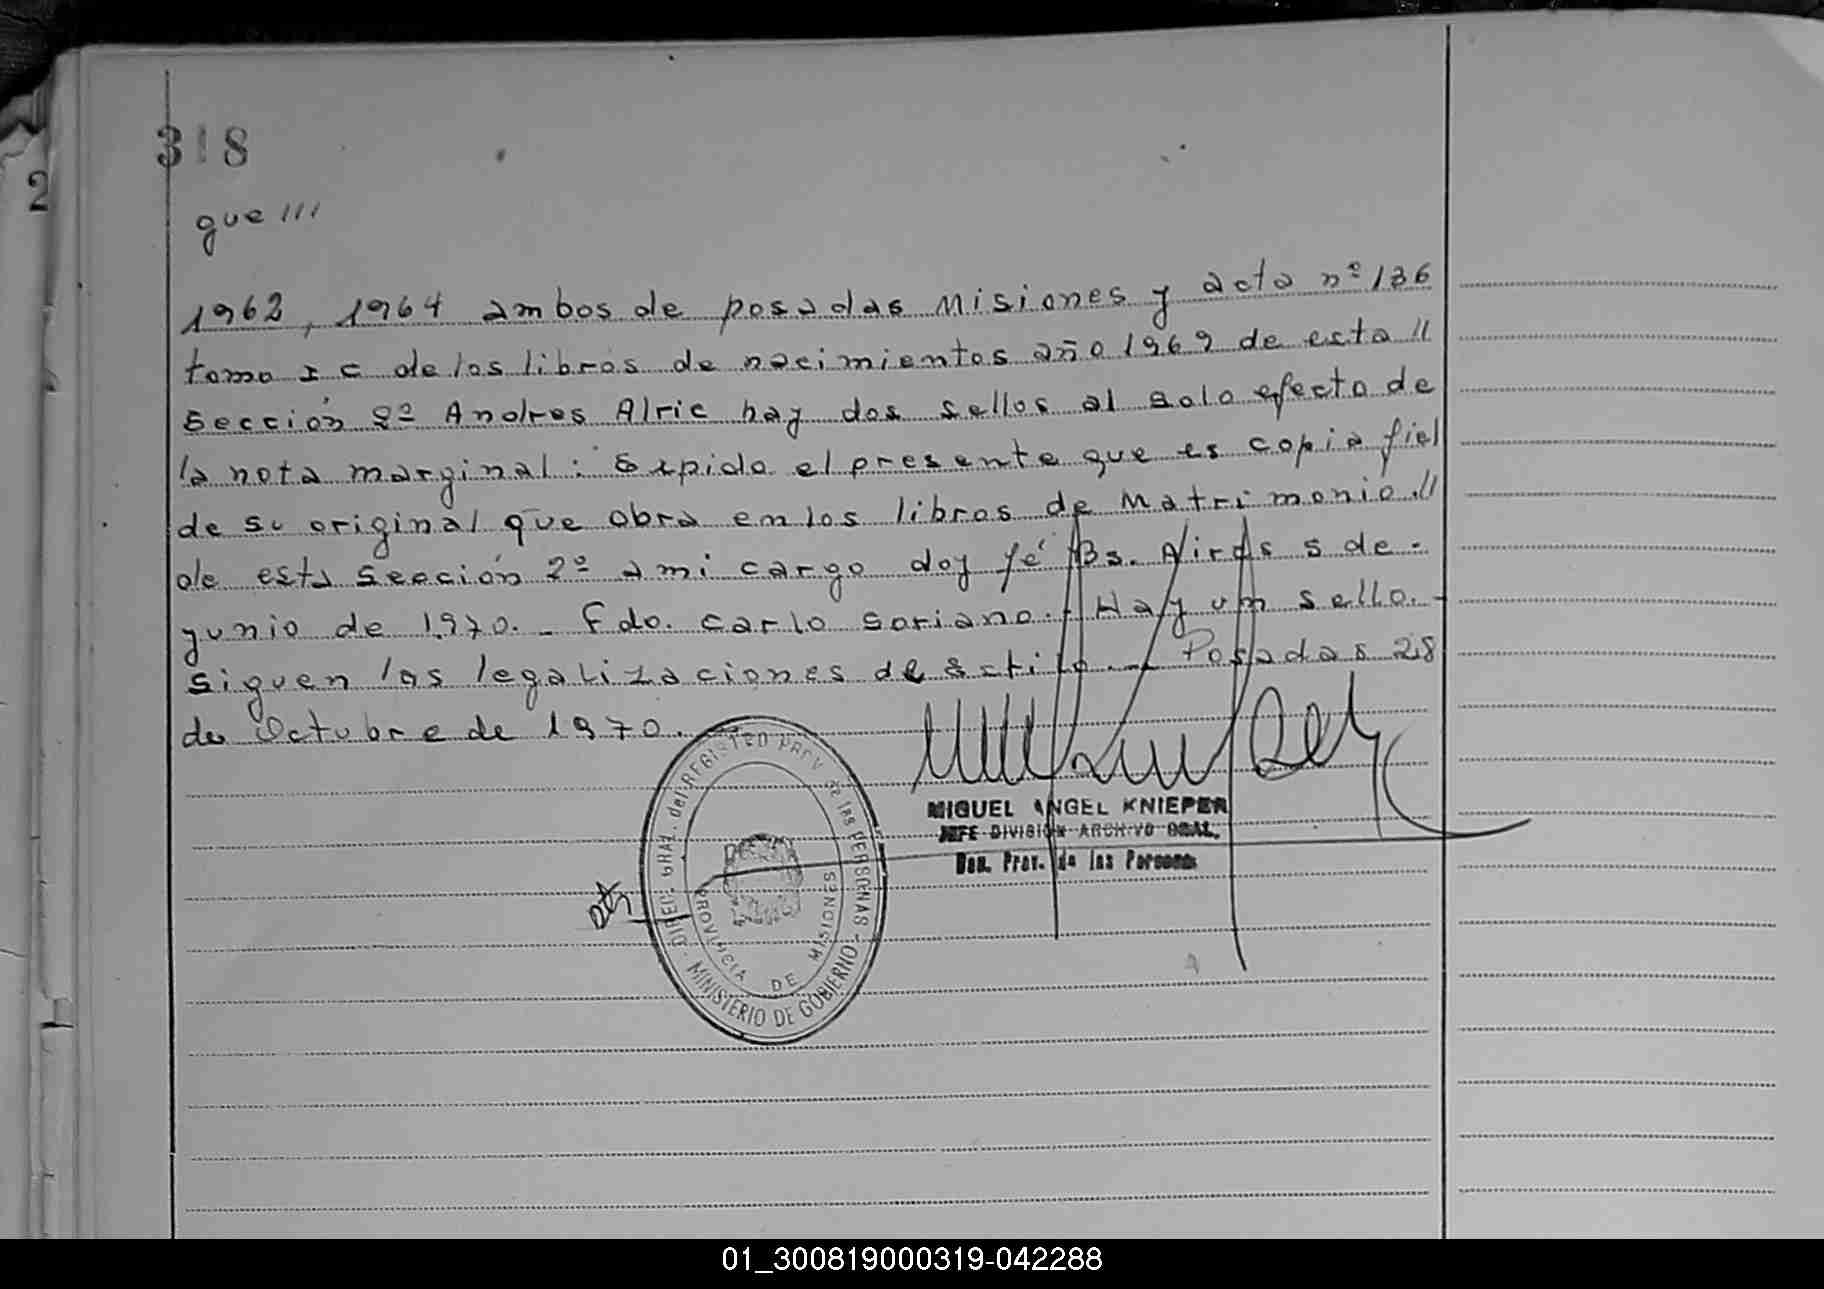 318
2
que ///
1962, 1964 ambos de posadas Misiones y acta nº 136
tomo I C de los libros de nacimientos año 1969 de esta //
Sección 2º Andres Alric hay dos sellos al solo efecto de
la nota marginal: Expido el presente que es copia fiel
de su original que obra en los libros de Matrimonio.//
de esta Sección 2º a mi cargo doy fé Bs. Aires 5 de -
junio de 1970. - Fdo. Carlo Soriano. - Hay un sello. -
Siguen las legalizaciones de estilo. - Posadas 28
de Octubre de 1970.
DIREC. GRAL. del REGISTRO PROV. de las PERSONAS
MINISTERIO DE GOBIERNO
PROVINCIA DE MISIONES
MIGUEL ANGEL KNIEPER
JEFE DIVISION ARCHIVO GRAL.
Prov. de las Personas
01_300819000319-042288